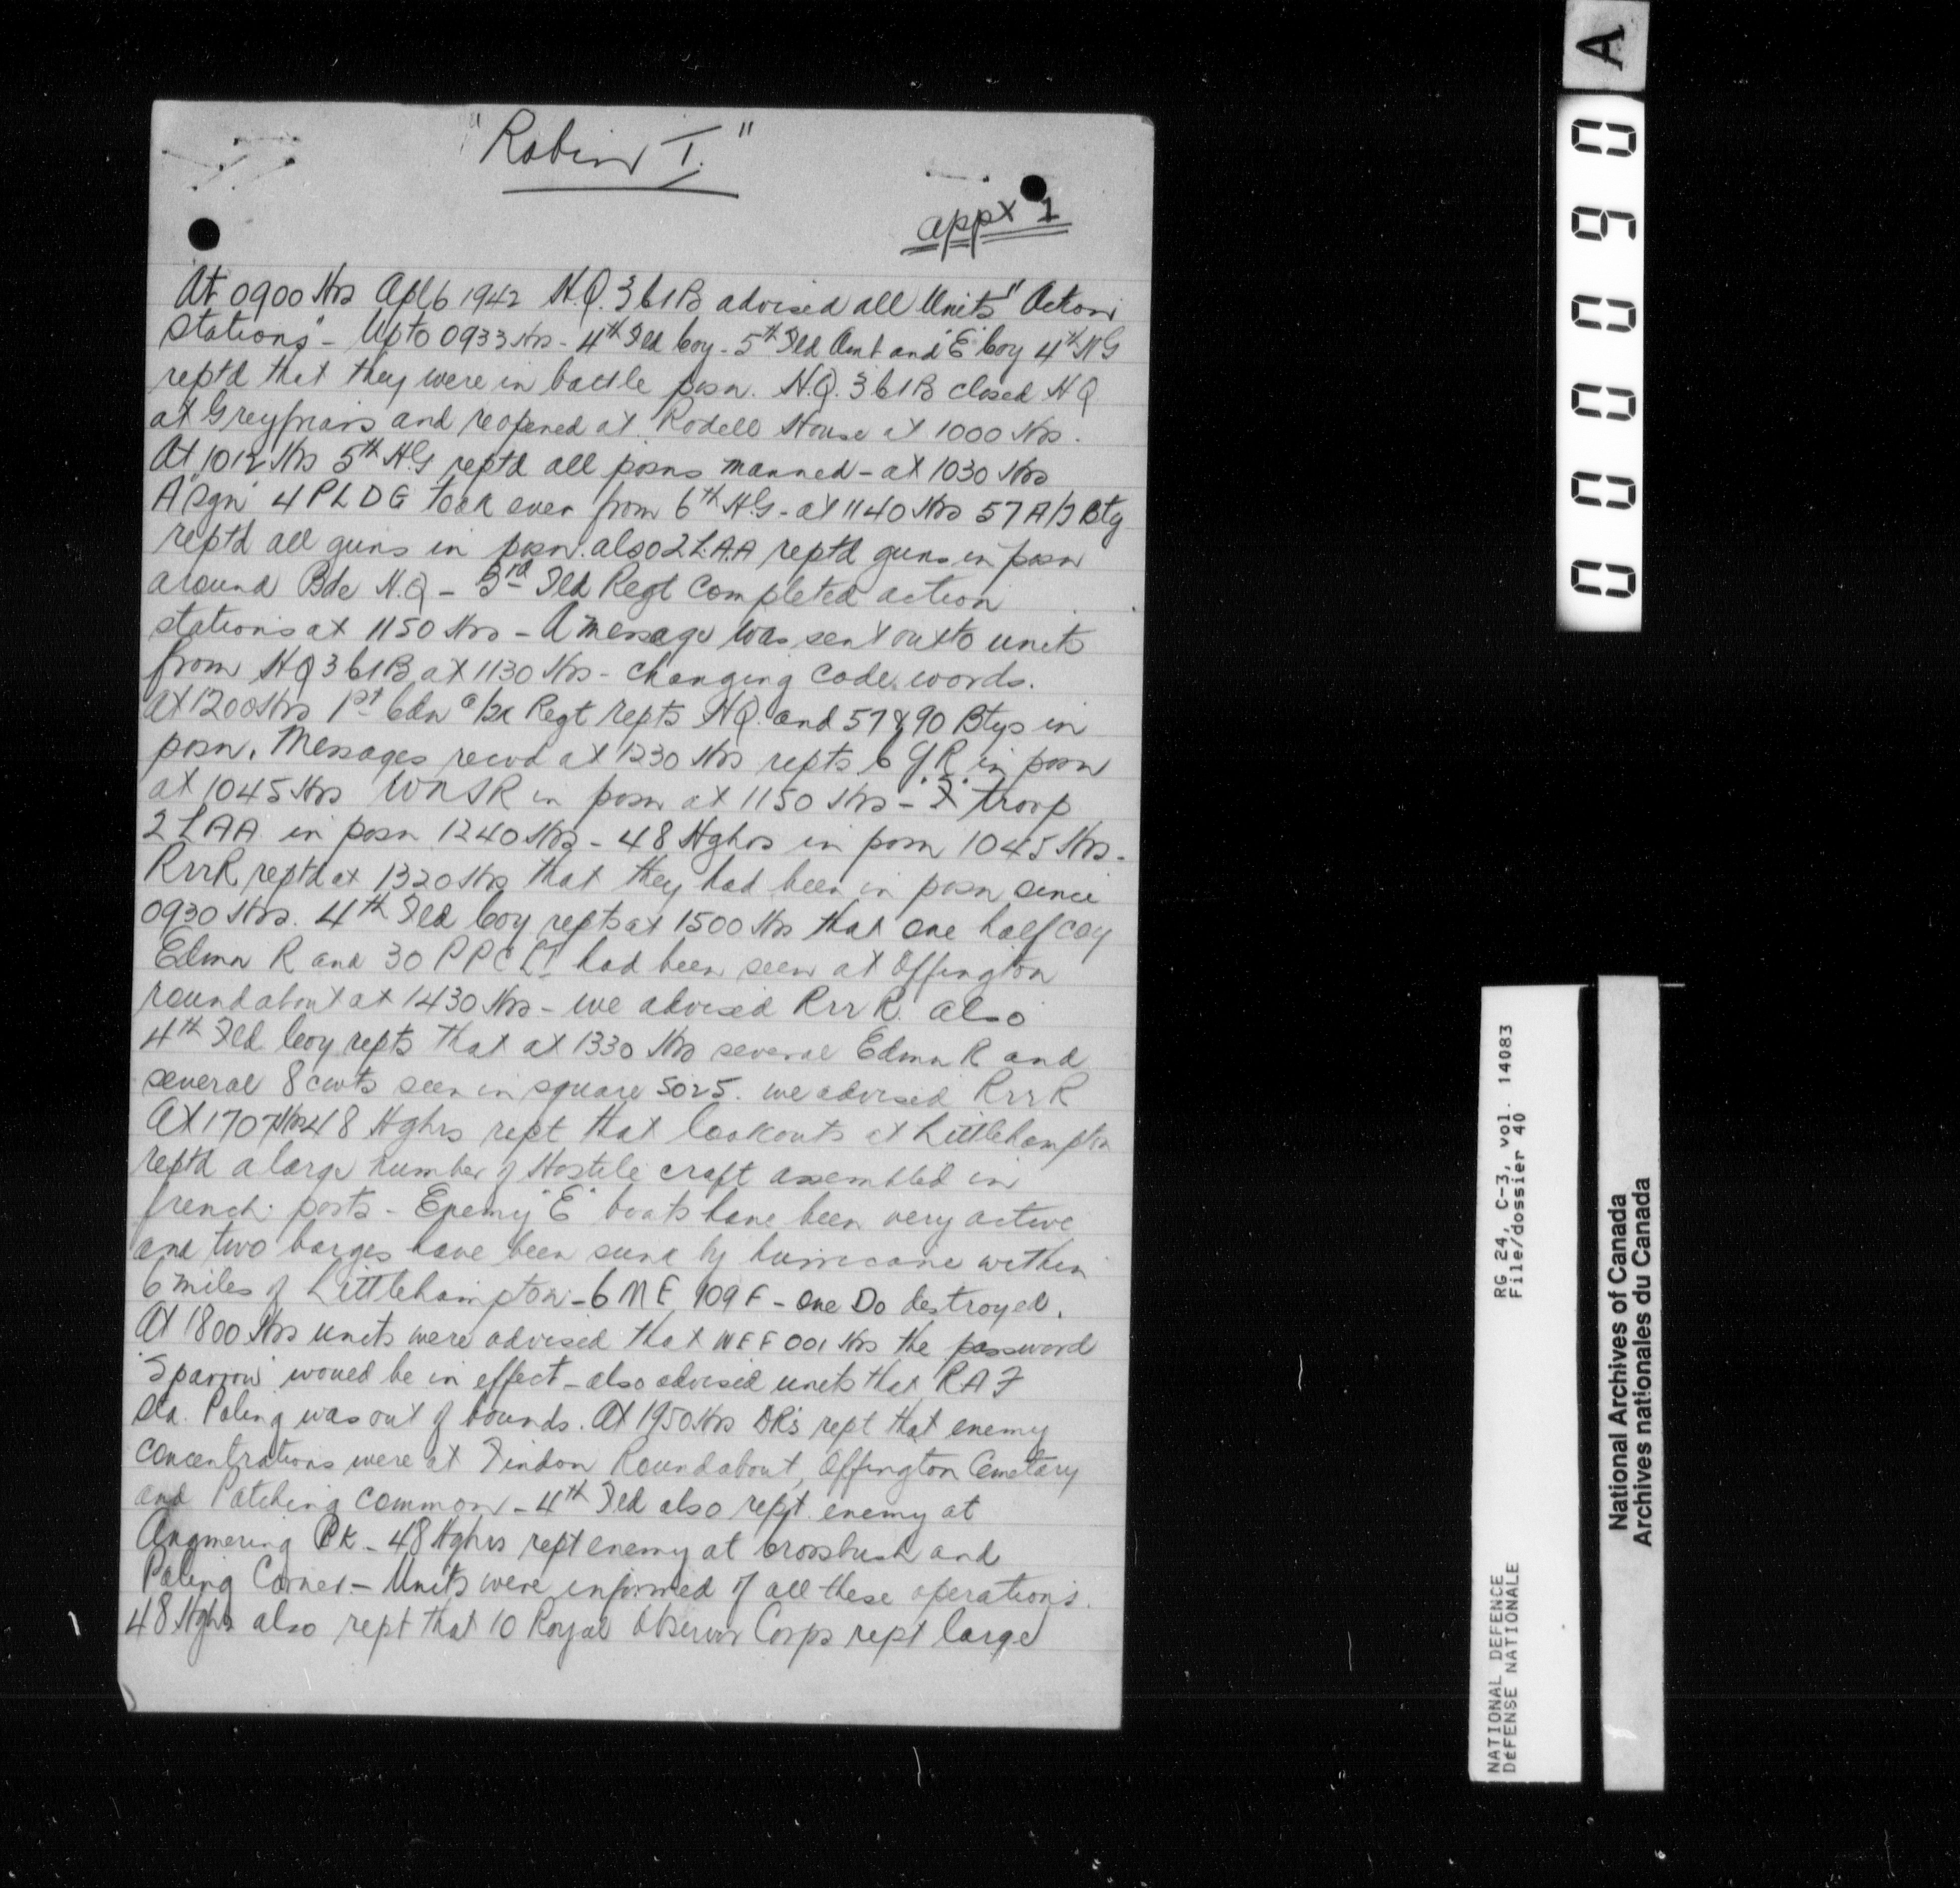 "Robin I."
appx 1
At 0900 Hrs Apl 6 1942 H.Q. 3 CIB advised all Units "Action
Stations" - Up to 0933 Hrs - 4th Fld Coy - 5th Fld Amb and "E" Coy 4th HG
reptd that they were in battle posn. H.Q. 3 CIB closed HQ
at Greyfriars and reopened at Rodell House at 1000 Hrs.
At 1012 Hrs 5th H.G reptd all posns manned - at 1030 Hrs
A "sqn" 4 PLDG took over from 6th H.G. - at 1140 Hrs 57 A/T Bty
reptd all guns in posn. also 2 L.A.A reptd guns in posn
around Bde H.Q - 3rd Fld Regt Completed action
stations at 1150 Hrs - A message was sent out to units
from HQ 3 CIB at 1130 Hrs - changing code words.
at 1200 Hrs 1st Cdn A/Tk Regt repts HQ. and 57 & 90 Btys in
posn. Messages recvd at 1230 Hrs repts 6 G.R. in posn
at 1045 Hrs WNSR in posn at 1150 Hrs - troop
2 LAA in posn 1240 Hrs - 48 Hghrs in posn 1045 Hrs -
RrrR reptd at 1320 Hrs that they had been in posn since
0930 Hrs. 4th Fld Coy repts at 1500 Hrs that one half coy
Edmn R and 30 PPCLI had been seen at Offington
roundabout at 1430 Hrs - we advised RrrR also
4th Fld Coy repts that at 1330 Hrs several Edmn R and
several 8 cwts seen in square 5025. we advised RrrR
At 1707 Hrs 48 Hghrs rept that lookouts at Littlehampton
reptd a large number of Hostile craft assembled in
french ports - Enemy "E" boats have been very active
and two barges have been sunk by hurricane within
6 miles of Littlehampton - 6 ME 109 F - one Do destroyed.
At 1800 Hrs units were advised that WEF 001 Hrs the password
'Sparrow' would be in effect - also advised units that RAF
Sta. Poling was out of bounds. At 1950 Hrs DR's rept that enemy
concentrations were at Findon Roundabout, Offington Cemetary
and Patching Common - 4th Fld also rept enemy at
Angmering Pk - 48 Hghrs rept enemy at Crossbush and
Poling Corner - Units were informed of all these operations.
48 Hghrs also rept that 10 Royal Observer Corps rept large
A
000090
RG 24, C-3, vol. 14083
File/dossier 40
NATIONAL DEFENCE
DÉFENSE NATIONALE
National Archives of Canada
Archives nationales du Canada